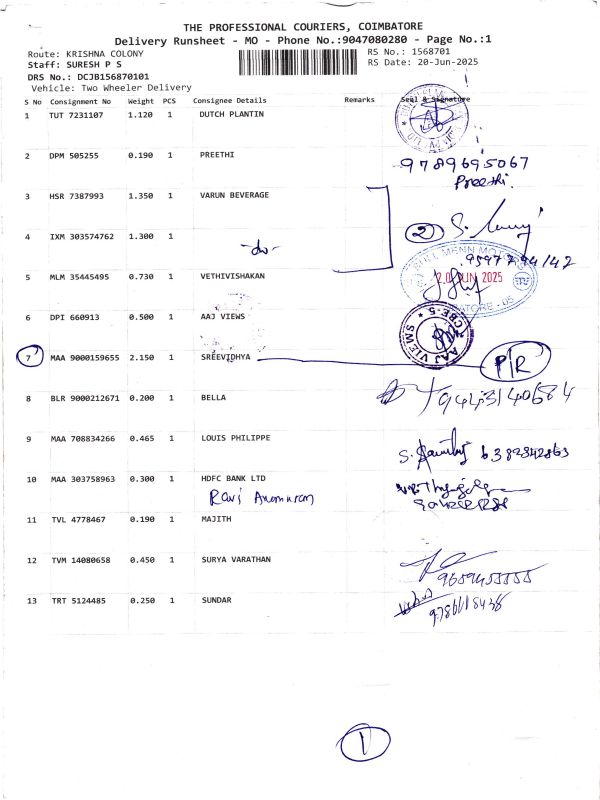 THE PROFESSIONAL COURIERS, COIMBATORE
Delivery Runsheet - MO - Phone No.:9047080280 - Page No.:1
Route: KRISHNA COLONY
RS No.: 1568701
Staff: SURESH P S
RS Date: 20-Jun-2025
DRS No.: DCJB156870101
Vehicle: Two Wheeler Delivery
S No Consignment No Weight PCS Consignee Details Remarks Seal & Signature
1 TUT 7231107 1.120 1 DUTCH PLANTIN
2 DPM 505255 0.190 1 PREETHI
9789695067
Preethi.
3 HSR 7387993 1.350 1 VARUN BEVERAGE
2
4 IXM 303574762 1.300 1
-do-
5 MLM 35445495 0.730 1 VETHIVISHAKAN
20 JUN 2025
6 DPI 660913 0.500 1 AAJ VIEWS
7 MAA 9000159655 2.150 1 SREEVIDHYA P/R
8 BLR 9000212671 0.200 1 BELLA
9 MAA 708834266 0.465 1 LOUIS PHILIPPE
10 MAA 303758963 0.300 1 HDFC BANK LTD
11 TVL 4778467 0.190 1 MAJITH
12 TVM 14080658 0.450 1 SURYA VARATHAN
13 TRT 5124485 0.250 1 SUNDAR
1